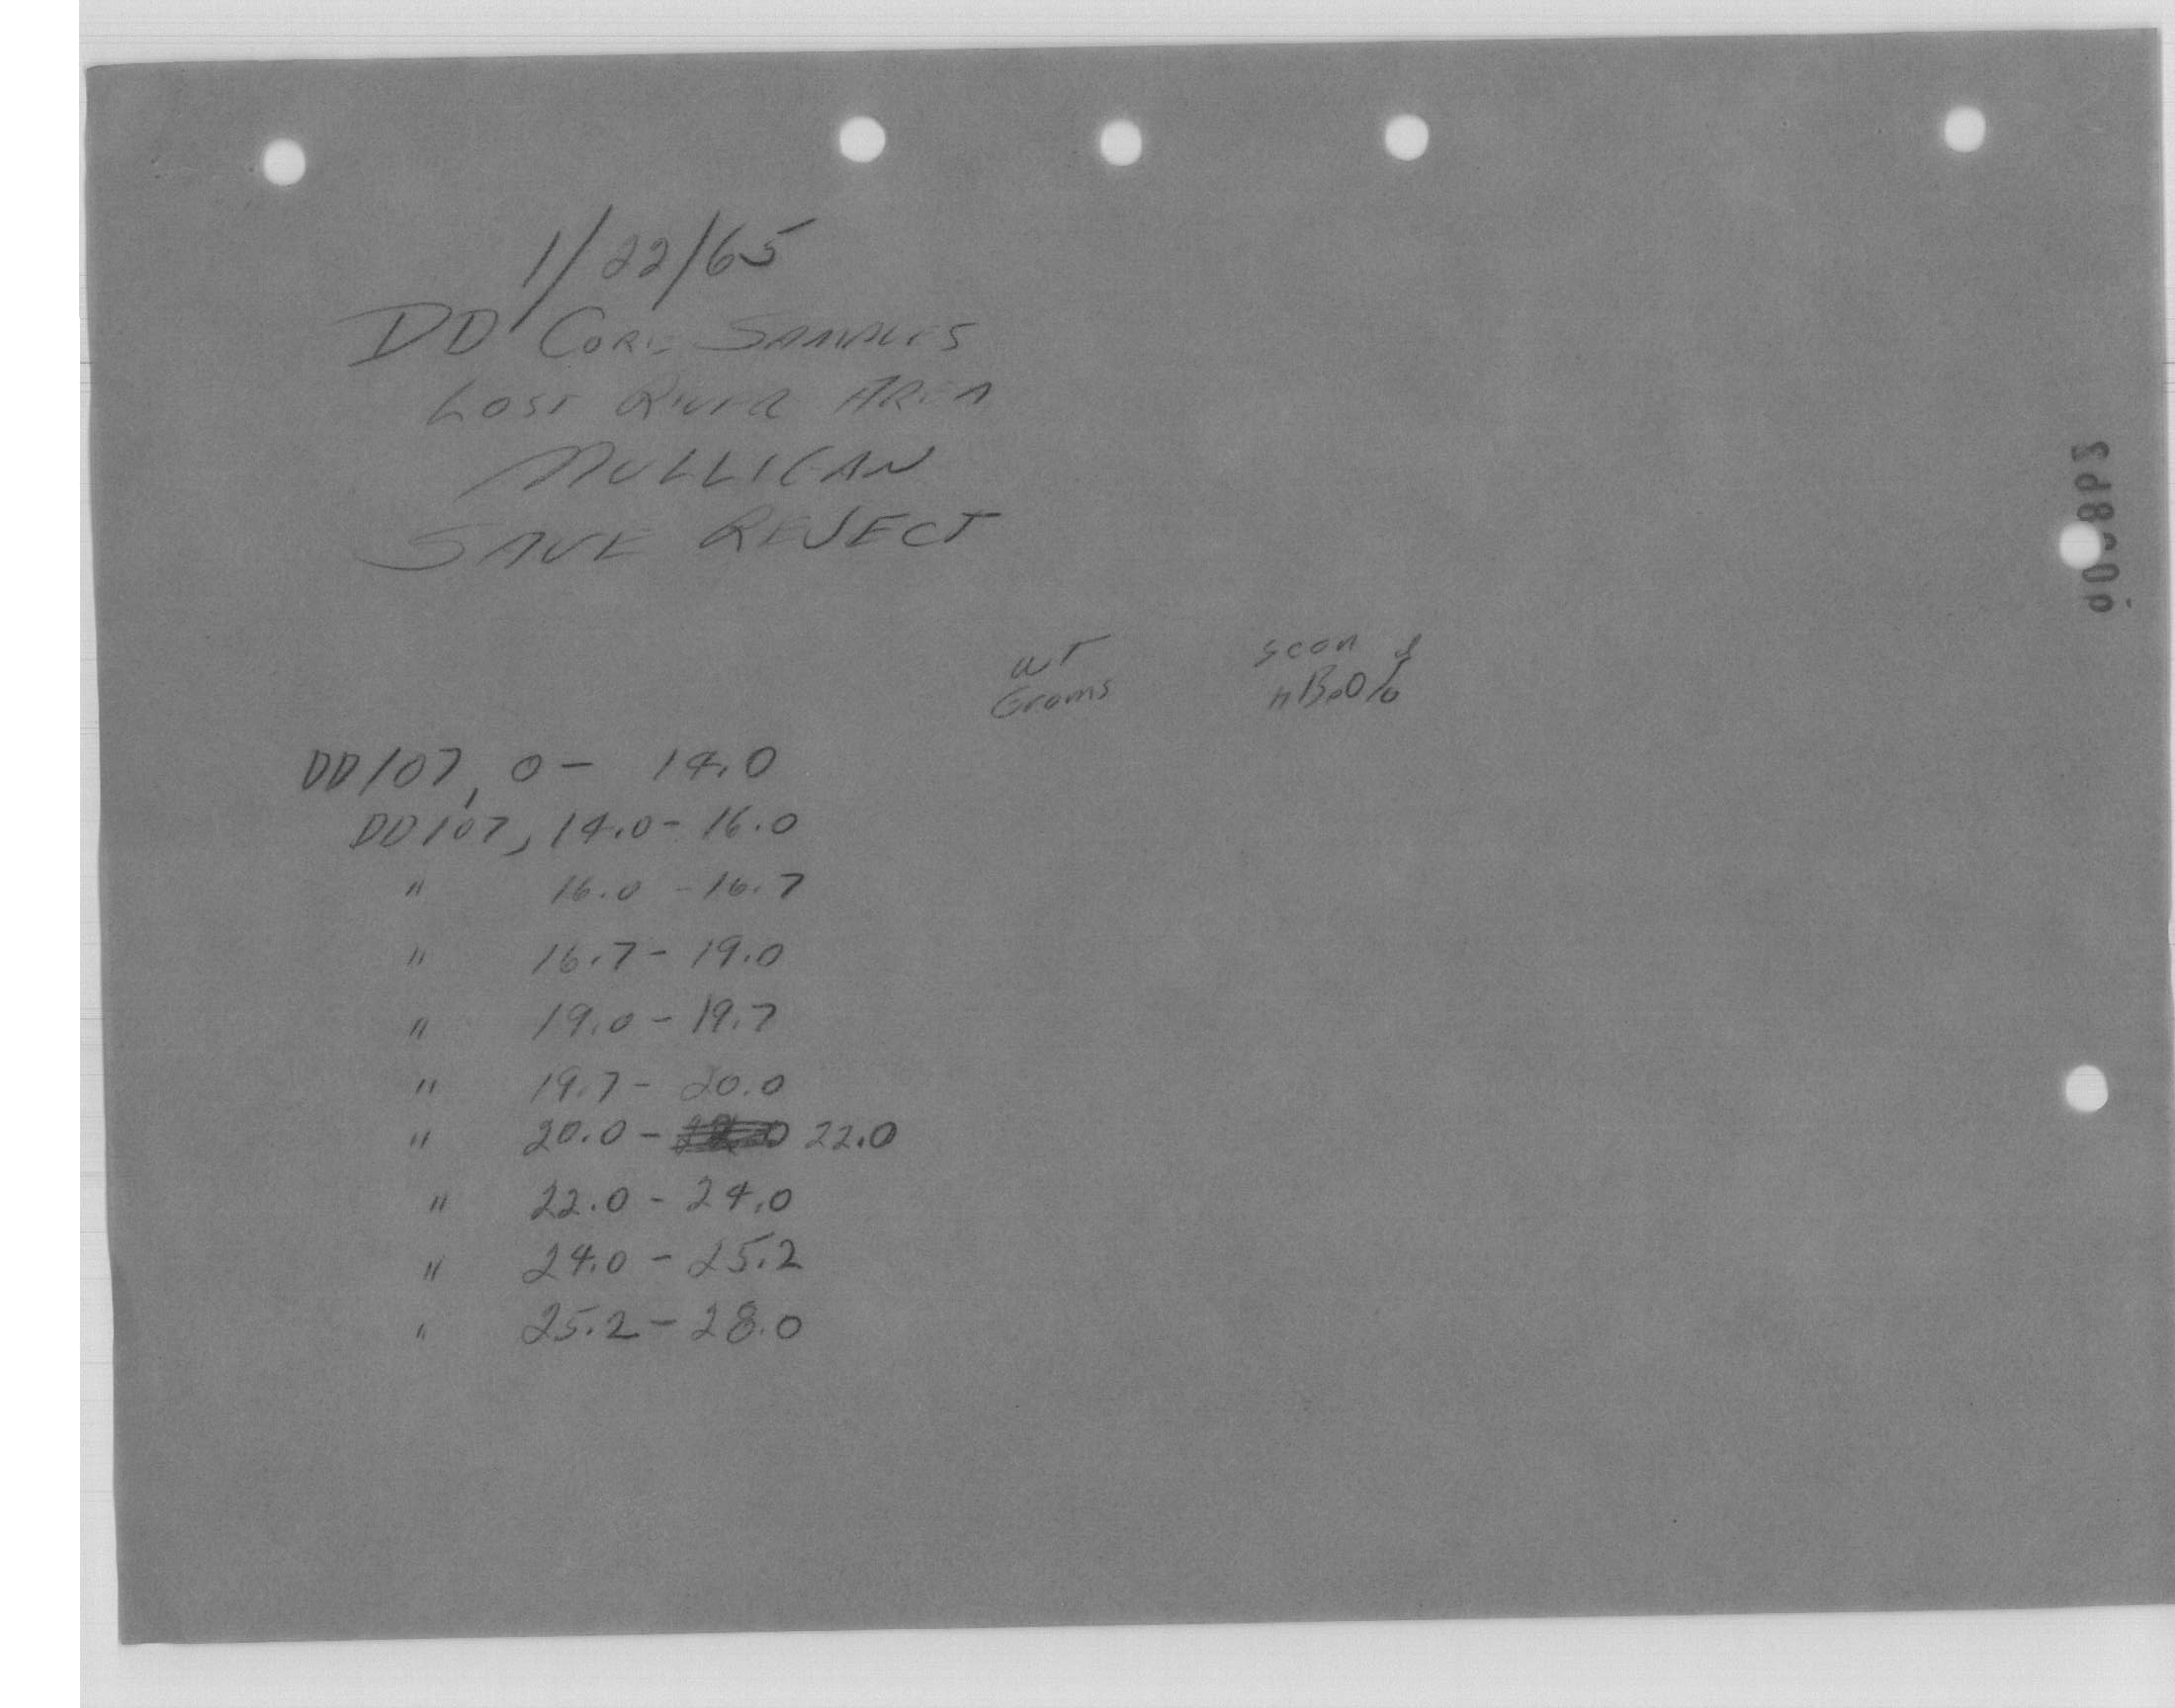 1/22/65
DD CORE SAMPLES
LOST RIVER AREA
MULLICAN
SAVE REJECT
WT
Grams
scan
DD107, 0 - 14.0
DD107, 14.0 - 16.0
" 16.0 - 16.7
" 16.7 - 19.0
" 19.0 - 19.7
" 19.7 - 20.0
" 20.0 - 22.0
" 22.0 - 24.0
" 24.0 - 25.2
" 25.2 - 28.0